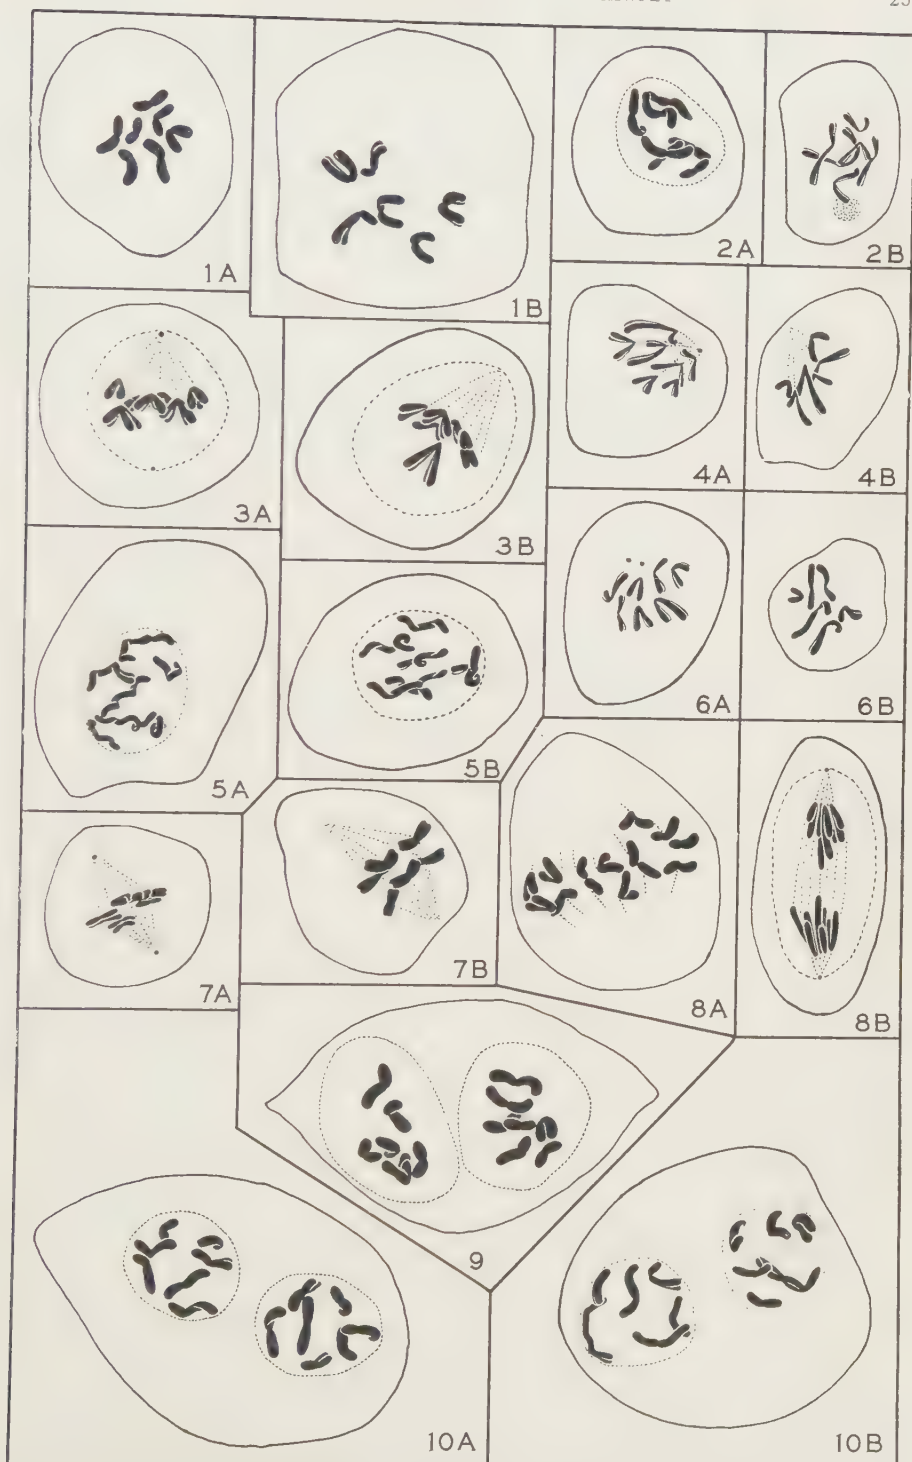 1A
1B
2A
2B
3A
3B
4A
4B
5A
5B
6A
6B
7A
7B
8A
8B
9
10A
10B